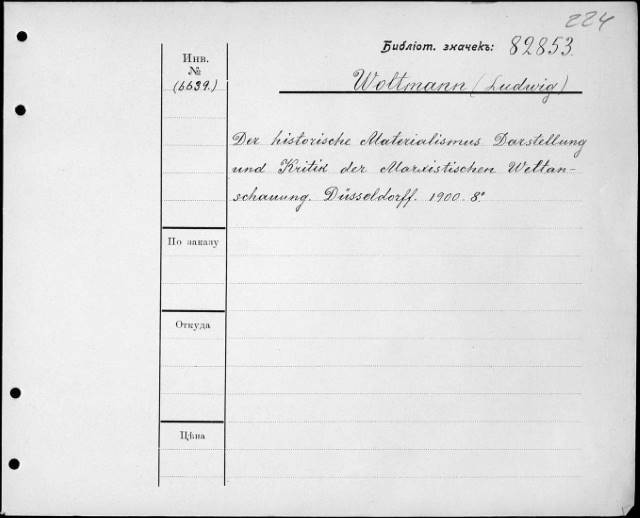 224
Библіот. значекъ: 82853
Инв.
№
(6639.)
Woltmann (Ludwig)
Der historische Materialismus Darstellung
und Kritik der Marxistischen Weltan-
schauung. Düsseldorff. 1900. 8º
По заказу
Откуда
Цѣна